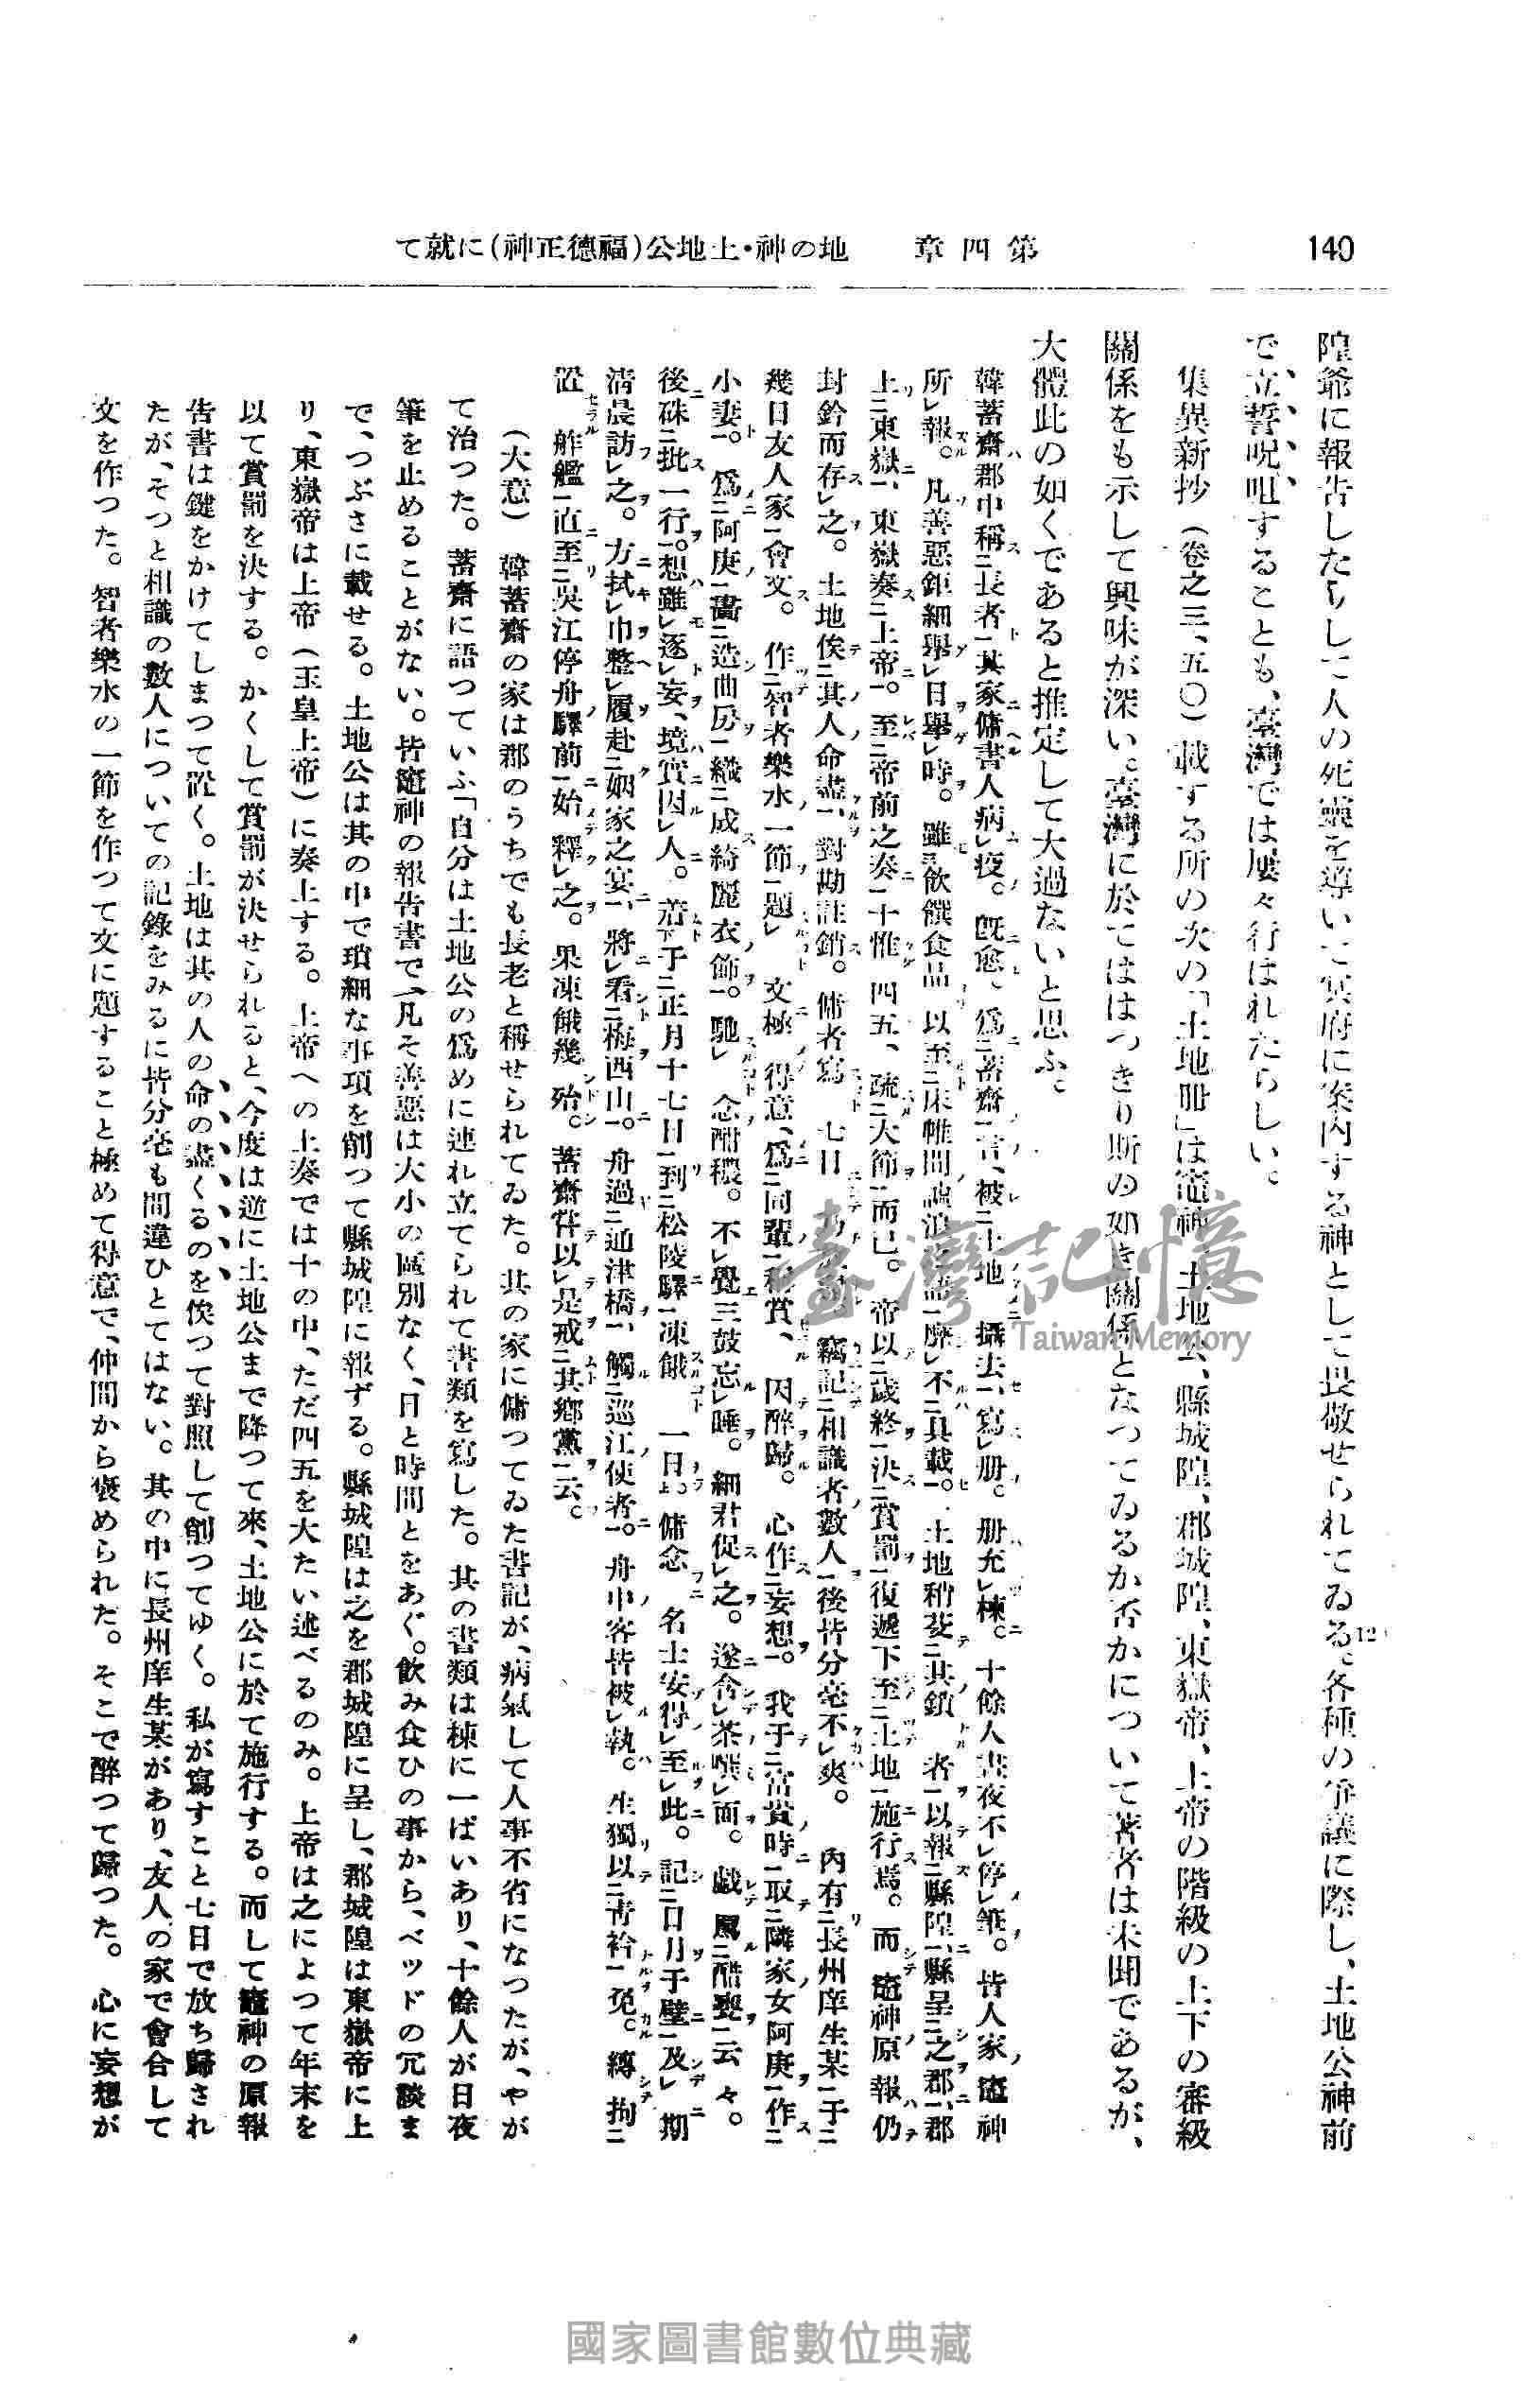 140
第四章　地の神・土地公(福德正神)に就て
隍爺に報告したりして人の死靈を導いて冥府に案内する神として畏敬せられてゐる。各種の爭議に際し、土地公神前
12
で立誓呪咀することも、臺灣では屢々行はれたらしい。
集異新抄（卷之三、五〇）載する所の次の「土地册」は竈神、土地公、縣城隍、郡城隍、東嶽帝、上帝の階級の上下の審級
關係をも示して興味が深い。臺灣に於てははつきり斯の如き關係となつてゐるか否かについて著者は未聞であるが、
大體此の如くであると推定して大過ないと思ふ。
韓蓄齋郡中稱二長者一其家傭書人病レ疫。既愈、爲二蓄齋一言、被二土地攝去一、寫レ册。册充レ棟。十餘人晝夜不レ停レ筆。皆人家竈神
所レ報。凡善惡鉅細擧レ日擧レ時。雖三飮饌食品以至二床帷間謔浪之語一靡レ不二具載一。土地稍芟二其鎖者一以報二縣隍一、縣呈二之郡一、郡
上二東嶽一、東嶽奏二上帝一。至二帝前之奏一十惟四五、疏二大節一而已。帝以二歲終一決二賞罰一復遞下至二土地一施行焉。而竈神原報仍
封鈐而存レ之。土地俟二其人命盡一、對勘註銷。傭者寫七日乃放還、竊記二相識者數人一後皆分毫不レ爽。內有二長州庠生某一于二
幾日友人家一會文。作二智者樂水一節一題レ文極得意、爲二同輩一稱賞、因醉歸。心作二妄想一。我于二富貴時一取二隣家女阿庚一作二
小妻一。爲二阿庚一畵二造曲房一織二成綺麗衣飾一。馳レ念酣穠。不レ覺三鼓忘レ睡。細君促レ之。遂含レ茶噀レ面。戯罵二酷甕一云々。
後硃二批一行。想雖レ逐レ妄、境實因レ人。着下于二正月十七日一到二松陵驛一凍餓一日上。傭念名士安得レ至レ此。記二日月于壁一及レ期
清晨訪レ之。方拭レ巾整レ履赴二姻家之宴一、將レ看二梅西山一。舟過二通津橋一、觸二巡江使者一。舟中客皆被レ執。生獨以二靑衿一免。縛拘二
置舴艦一直至二吳江停舟驛前一始釋レ之。果凍餓幾殆。蓄齋嘗以レ是戒二其鄕黨一云。
（大意）　韓蓄齋の家は郡のうちでも長老と稱せられてゐた。其の家に傭つてゐた書記が、病氣して人事不省になつたが、やが
て治つた。蓄齋に語つていふ「自分は土地公の爲めに連れ立てられて書類を寫した。其の書類は棟に一ぱいあり、十餘人が日夜
筆を止めることがない。皆竈神の報告書で、凡そ善惡は大小の區別なく、日と時間とをあぐ。飮み食ひの事から、ベッドの冗談ま
で、つぶさに載せる。土地公は其の中で瑣細な事項を削つて縣城隍に報ずる。縣城隍は之を郡城隍に呈し、郡城隍は東嶽帝に上
り、東嶽帝は上帝（玉皇上帝）に奏上する。上帝への上奏では十の中、ただ四五を大たい述べるのみ。上帝は之によつて年末を
以て賞罰を決する。かくして賞罰が決せられると、今度は逆に土地公まで降つて來、土地公に於て施行する。而して竈神の原報
告書は鍵をかけてしまつて置く。土地は其の人の命の盡くるのを俟つて對照して削つてゆく。私が寫すこと七日で放ち歸され
たが、そつと相識の數人についての記錄をみるに皆分毫も間違ひとてはない。其の中に長州庠生某があり、友人の家で會合して
文を作つた。智者樂水の一節を作つて文に題すること極めて得意で、仲間から褒められた。そこで醉つて歸つた。心に妄想が
臺灣記憶
Taiwan Memory
國家圖書館數位典藏